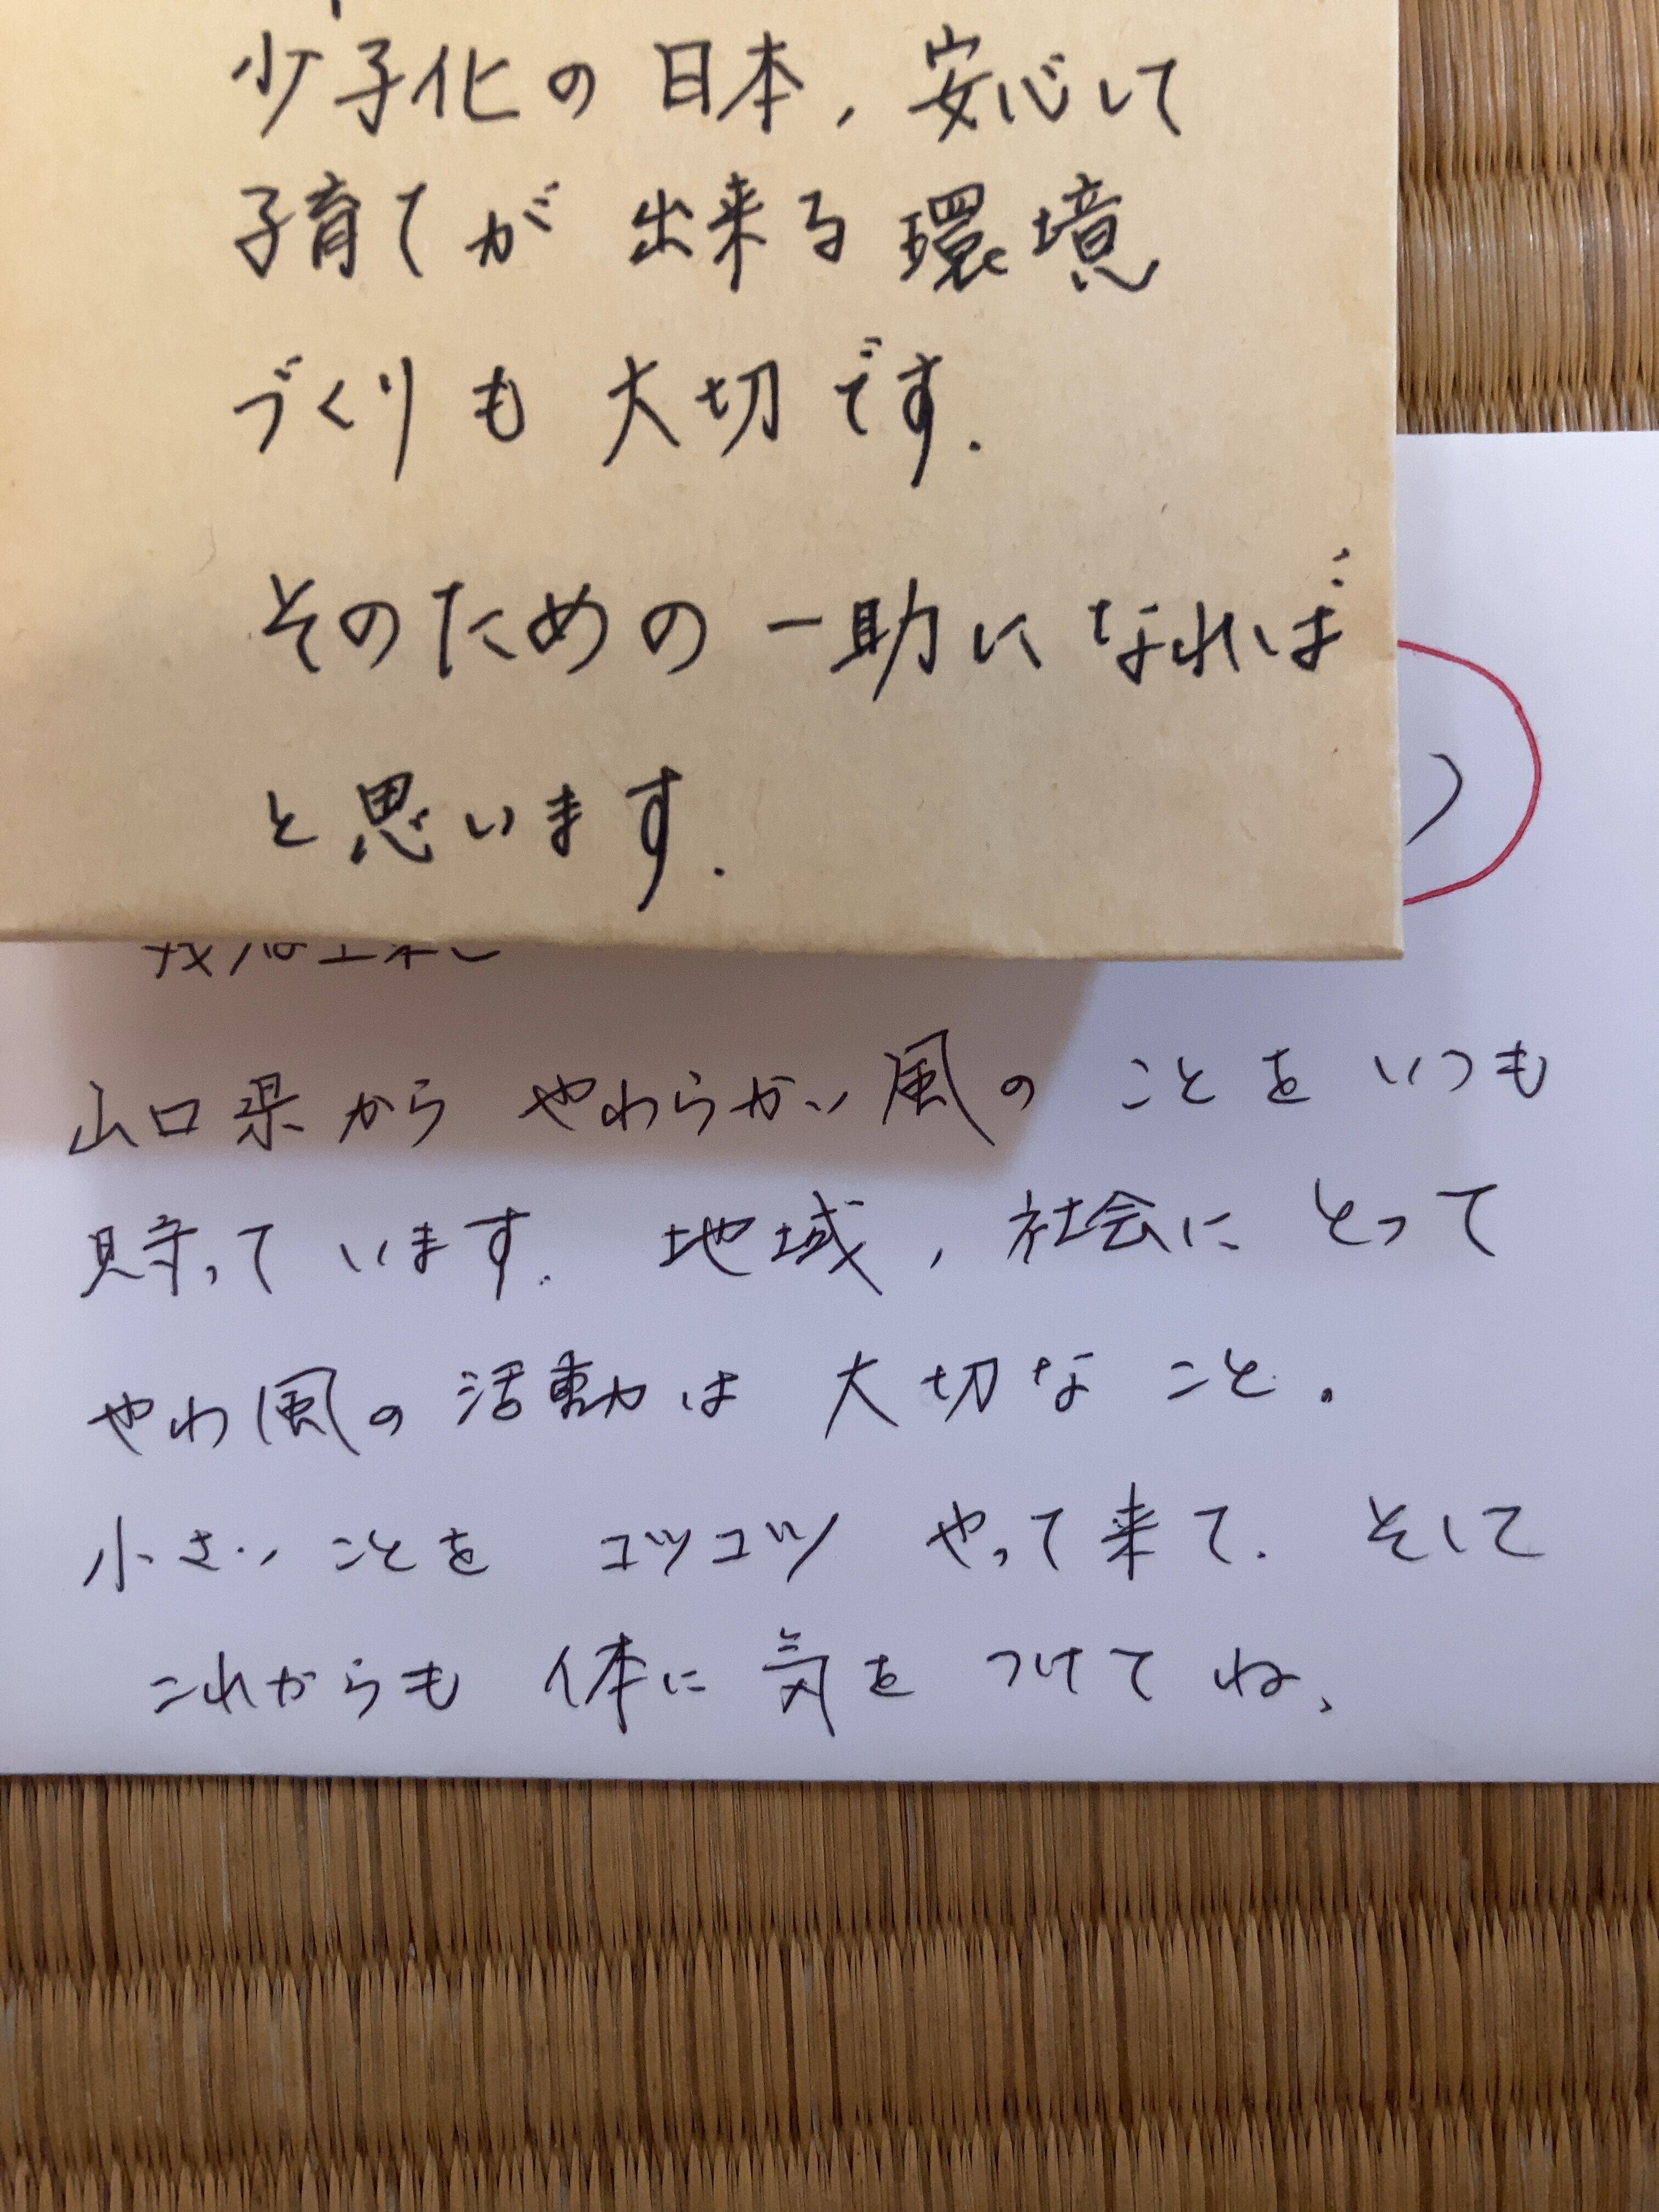 少子化の日本、安心して
子育てが出来る環境
づくりも大切です.
そのための一助になれば
と思います.
山口県からやわらかい風のことをいつも
っています. 地域、社会にとって
やわ風の活動は大切なこと。
小さいことをコツコツやって来て. そして
これからも体に気をつけてね、